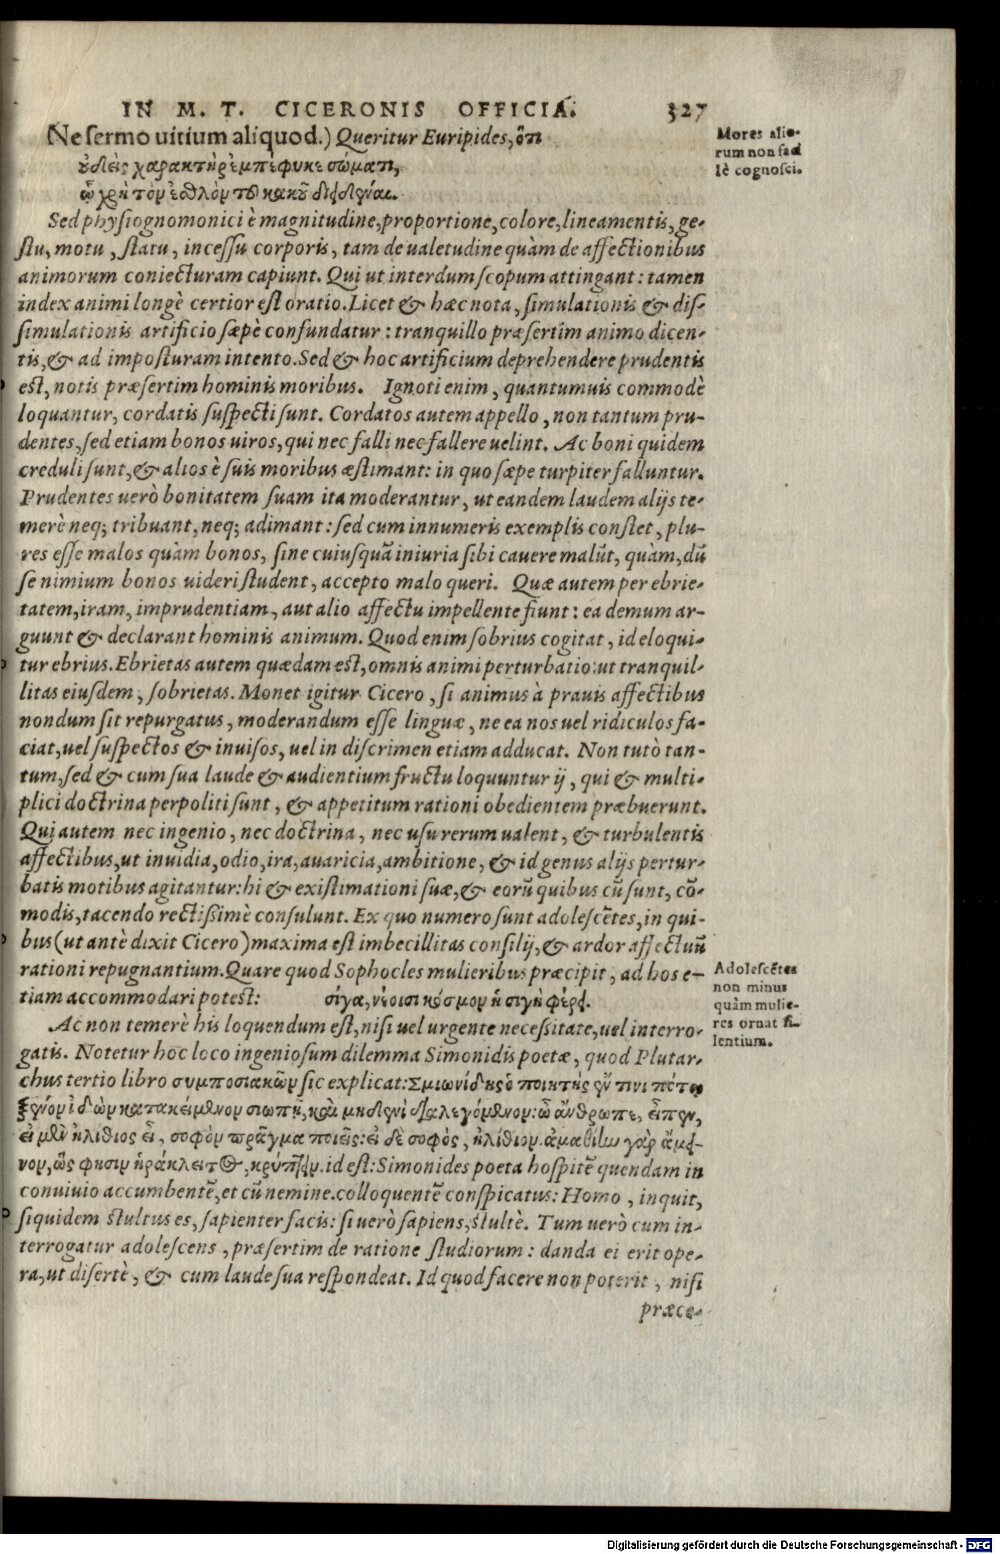 IN M. T. CICERONIS OFFICIA. 327
Ne sermo uitium aliquod.) Queritur Euripides, ὅτι
Mores alio-
rum non facì
lè cognosci.
οὐδεὶς χαρακτὴρ ἐμπέφυκε σώματι,
ᾧ χρὴ τὸν ἐσθλὸν τοῦ κακοῦ διειδέναι.
Sed physiognomonici è magnitudine, proportione, colore, lineamentis, ge-
stu, motu, statu, incessu corporis, tam de ualetudine quàm de affectionibus
animorum coniecturam capiunt. Qui ut interdum scopum attingant: tamen
index animi longè certior est oratio. Licet & hæc nota, simulationis & dis-
simulationis artificio sæpè confundatur: tranquillo præsertim animo dicen-
tis, & ad imposturam intento. Sed & hoc artificium deprehendere prudentis
est, notis præsertim hominis moribus. Ignoti enim, quantumuis commodè
loquantur, cordatis suspecti sunt. Cordatos autem appello, non tantum pru-
dentes, sed etiam bonos uiros, qui nec falli nec fallere uelint. Ac boni quidem
creduli sunt, & alios è suis moribus æstimant: in quo sæpe turpiter falluntur.
Prudentes uerò bonitatem suam ita moderantur, ut eandem laudem alijs te-
merè neq; tribuant, neq; adimant: sed cum innumeris exemplis constet, plu-
res esse malos quàm bonos, sine cuiusquã iniuria sibi cauere malũt, quàm, dũ
se nimium bonos uideri student, accepto malo queri. Quæ autem per ebrie-
tatem, iram, imprudentiam, aut alio affectu impellente fiunt: ea demum ar-
guunt & declarant hominis animum. Quod enim sobrius cogitat, id eloqui-
tur ebrius. Ebrietas autem quædam est, omnis animi perturbatio: ut tranquil-
litas eiusdem, sobrietas. Monet igitur Cicero, si animus à prauis affectibus
nondum sit repurgatus, moderandum esse linguæ, ne ea nos uel ridiculos fa-
ciat, uel suspectos & inuisos, uel in discrimen etiam adducat. Non tutò tan-
tum, sed & cum sua laude & audientium fructu loquuntur ij, qui & multi-
plici doctrina perpoliti sunt, & appetitum rationi obedientem præbuerunt.
Qui autem nec ingenio, nec doctrina, nec usu rerum ualent, & turbulentis
affectibus, ut inuidia, odio, ira, auaricia, ambitione, & id genus alijs pertur-
batis motibus agitantur: hi & existimationi suæ, & eorũ quibus cũ sunt, cõ-
modis, tacendo rectißimè consulunt. Ex quo numero sunt adolescẽtes, in qui-
bus (ut antè dixit Cicero) maxima est imbecillitas consilij, & ardor affectuũ
rationi repugnantium. Quare quod Sophocles mulieribus præcipit, ad hos e-
tiam accommodari potest: σίγα, νέοισι κόσμον ἡ σιγὴ φέρει.
Adolescẽtes
non minus
quàm mulie-
res ornat si-
lentium.
Ac non temerè his loquendum est, nisi uel urgente necessitate, uel interro-
gatis. Notetur hoc loco ingeniosum dilemma Simonidis poetæ, quod Plutar-
chus tertio libro συμποσιακῶν sic explicat: Σιμωνίδης ὁ ποιητὴς ἔν τινι πότῳ
ξένον ἰδὼν κατακείμενον σιωπῇ, καὶ μηδενὶ διαλεγόμενον: ὦ ἄνθρωπε, εἶπεν,
εἰ μὲν ἠλίθιος εἶ, σοφὸν πρᾶγμα ποιεῖς: εἰ δὲ σοφὸς, ἠλίθιον. ἀμαθίην γὰρ ἄμει-
νον, ὥς φησιν ἡράκλειτος, κρύπτειν. id est: Simonides poeta hospitẽ quendam in
conuiuio accumbentẽ, et cũ nemine colloquentẽ conspicatus: Homo, inquit,
siquidem stultus es, sapienter facis: si uerò sapiens, stultè. Tum uerò cum in-
terrogatur adolescens, præsertim de ratione studiorum: danda ei erit ope-
ra, ut disertè, & cum laude sua respondeat. Id quod facere non poterit, nisi
præce-
Digitalisierung gefördert durch die Deutsche Forschungsgemeinschaft - DFG